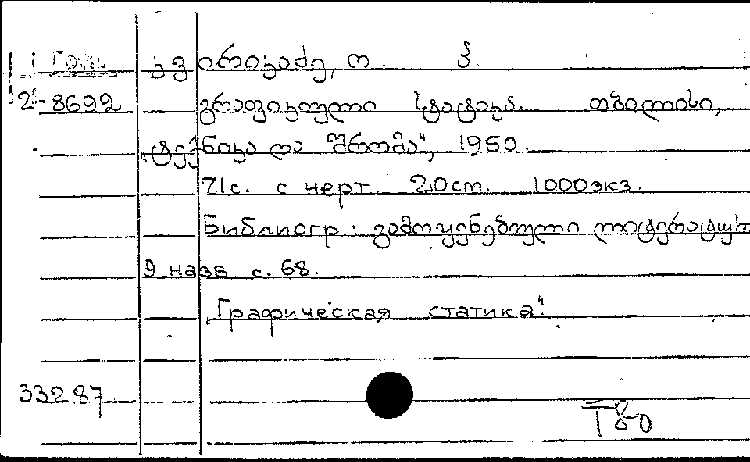 კვირიკაძე, ო.
2-8692 გრაფიკული სტატიკა. თბილისი,
„ტექნიკა და შრომა“, 1950.
71с. с черт. 20см. 1000экз.
Библиогр.: გამოყენებული ლიტერატურა
9 назв. с. 68.
„Графическая статика“.
33287
T80